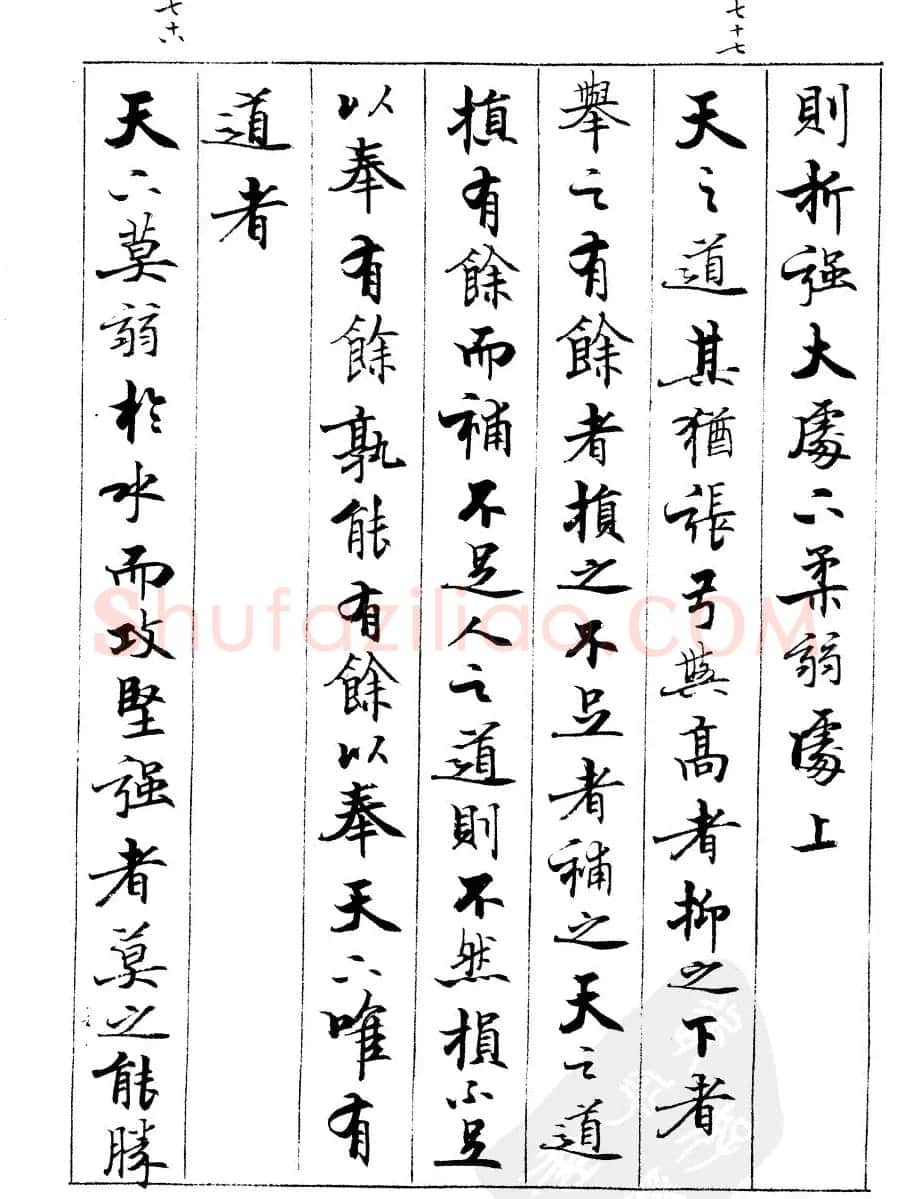 七十七
則折强大處下柔弱處上
天之道其猶張弓與高者抑之下者
舉之有餘者損之不足者補之天之道
損有餘而補不足人之道則不然損不足
以奉有餘孰能有餘以奉天下唯有
道者
七十八
天下莫弱於水而攻堅强者莫之能勝
Shufaziliao.COM